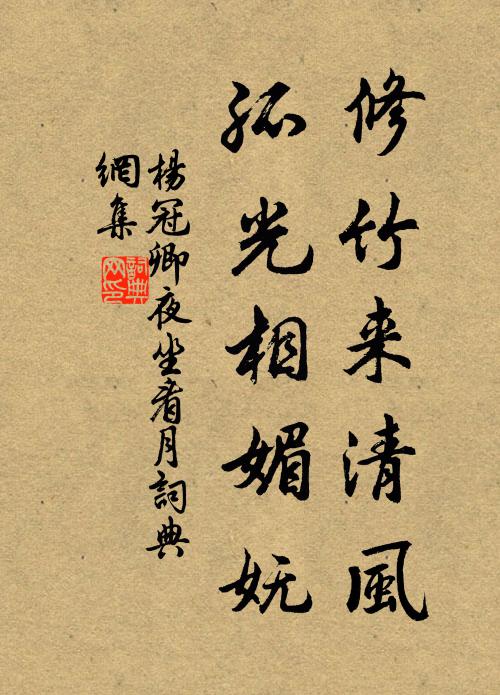 修竹来清風
孤光相媚妩
楊冠卿夜坐看月詞典
網集
詞典
网印